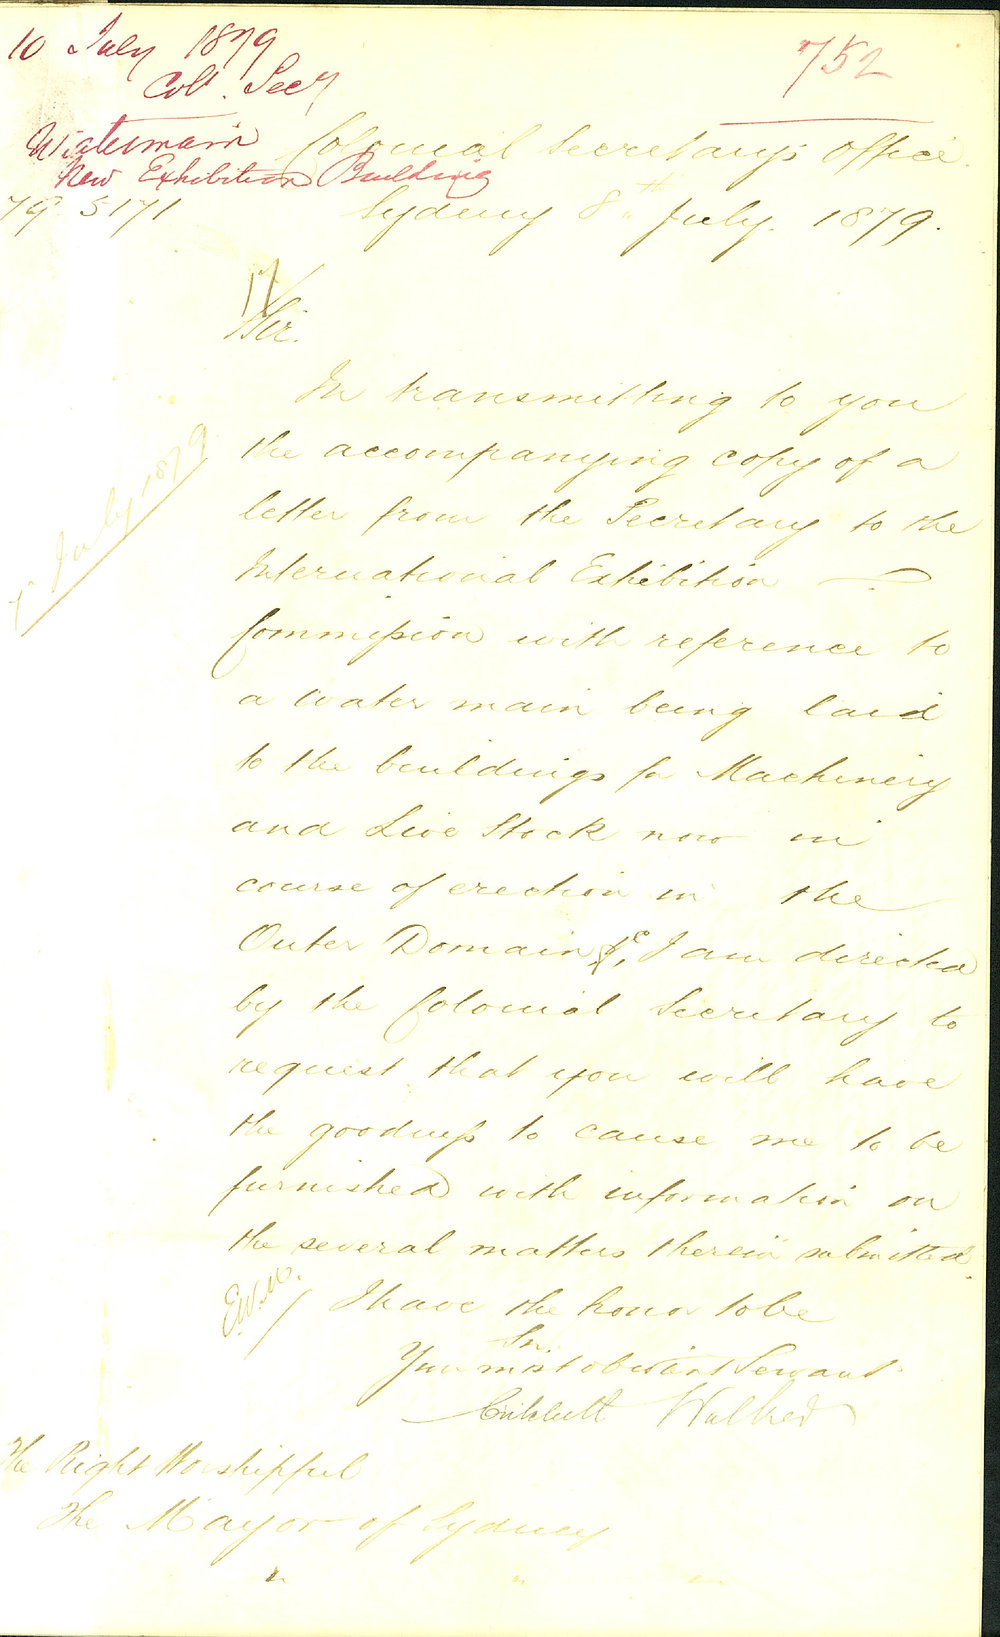 10 July 1879
Col. Secy
752
Watermain
New Exhibition Building
Colonial Secretary's Office.
79 5171
Sydney 8th July. 1879.
17
Sir.
In transmitting to you
the accompanying copy of a
letter from the Secretary to the
International Exhibition
Commission with reference to
a Water main being laid
to the buildings for Machinery
and Live Stock now in
course of erection in the
Outer Domain &c, I am directed
by the Colonial Secretary to
request that you will have
the goodness to cause me to be
furnished with information on
the several matters therein submitted.
7 July 1879
E.W.M.
I have the honor to be
Sir.
Your most obedient Servant
Critchett Walker
The Right Worshipful
The Mayor of Sydney